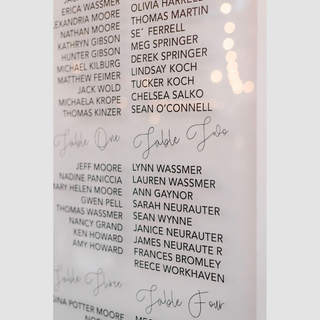 ERICA WASSMER
ALEXANDRIA MOORE
NATHAN MOORE
KATHRYN GIBSON
HUNTER GIBSON
MICHAEL KILBURG
MATTHEW FEIMER
JACK WOLD
MICHAELA KROPE
THOMAS KINZER
OLIVIA HARRELL
THOMAS MARTIN
SE´ FERRELL
MEG SPRINGER
DEREK SPRINGER
LINDSAY KOCH
TUCKER KOCH
CHELSEA SALKO
SEAN O'CONNELL
Table One
JEFF MOORE
NADINE PANICCIA
MARY HELEN MOORE
GWEN PELL
THOMAS WASSMER
NANCY GRAND
KEN HOWARD
AMY HOWARD
Table Two
LYNN WASSMER
LAUREN WASSMER
ANN GAYNOR
SARAH NEURAUTER
SEAN WYNNE
JANICE NEURAUTER
JAMES NEURAUTE R
FRANCES BROMLEY
REECE WORKHAVEN
Table Three
POTTER MOORE
Table Four